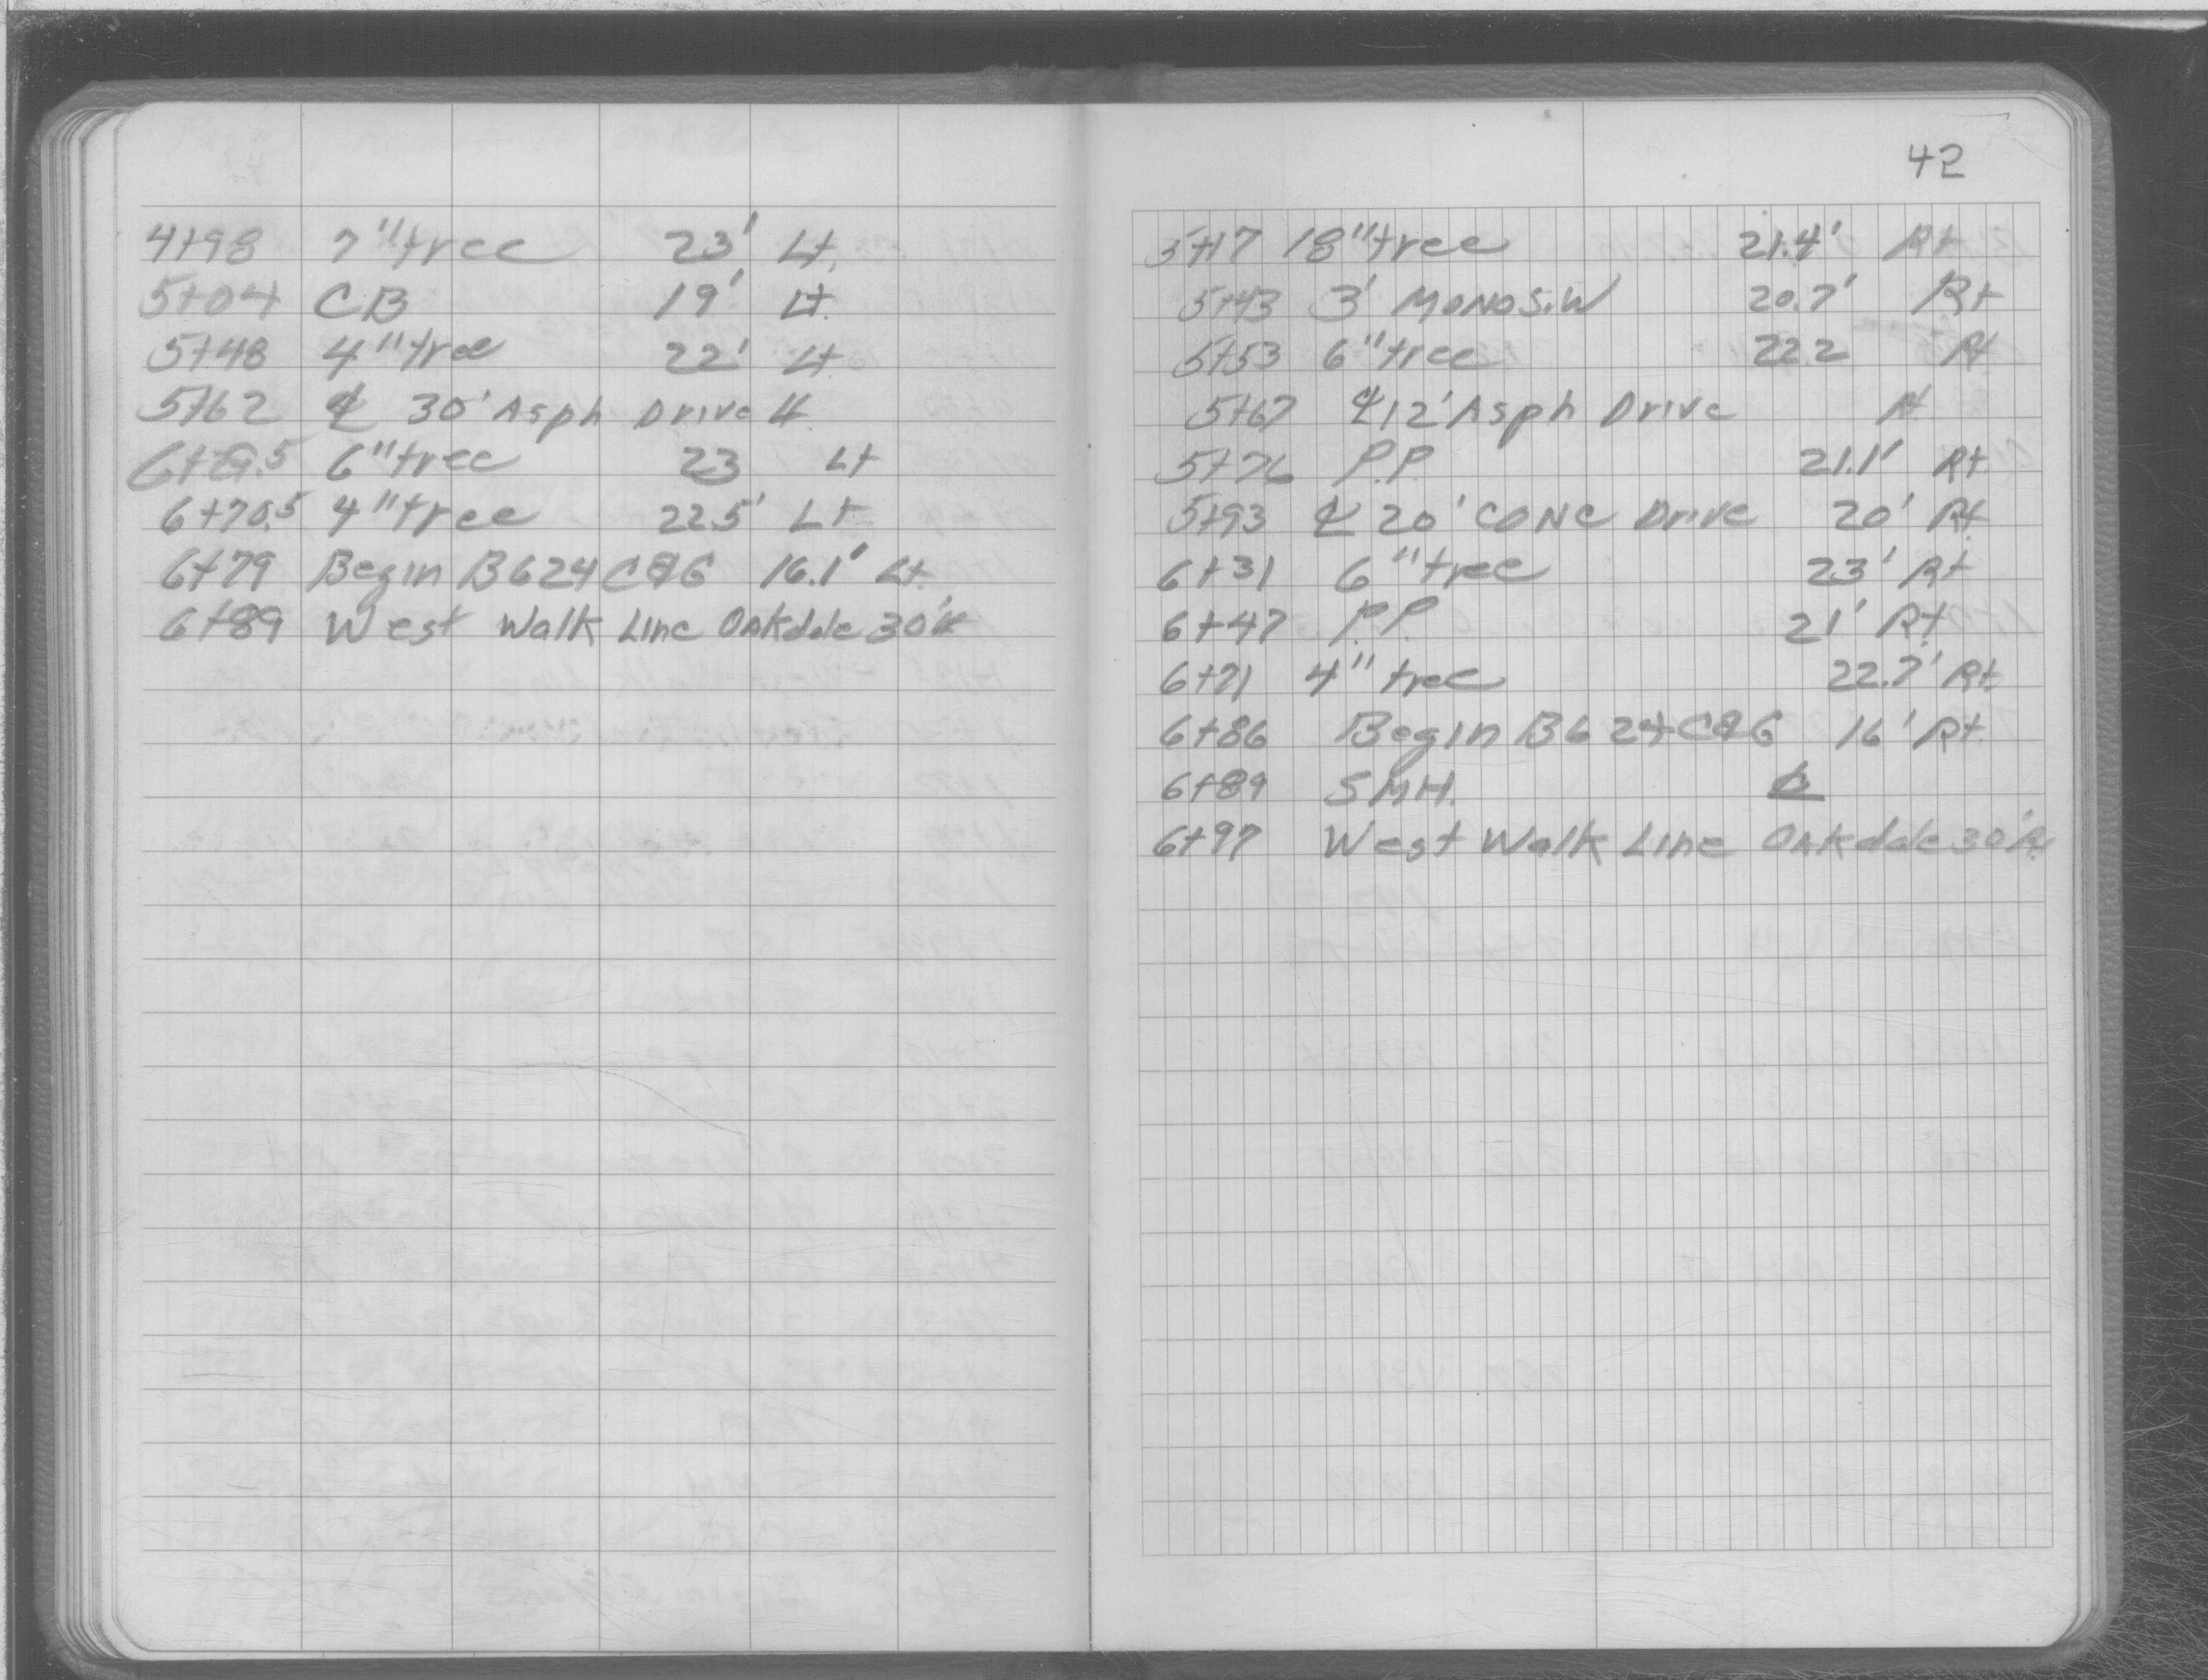 4+98 7" tree 23' Lt.
5+04 CB 19' Lt.
5+48 4" tree 22' Lt
5+62 ℄ 30' Asph Drive Lt
6" tree 23 Lt
6+70.5 4" tree 22.5' Lt
6+79 Begin B624 C&G 16.1' Lt.
6+89 West Walk Line Oakdale 30' Lt
42
5+17 18" tree 21.4' Rt
5+43 3' MONO S.W 20.7' Rt
5+53 6" tree 22.2 Rt
5+67 ℄ 12' Asph Drive Rt
5+76 P.P. 21.1' Rt
5+93 ℄ 20' CONC Drive 20' Rt
6+31 6" tree 23' Rt
6+47 P.P. 21' Rt
6+71 4" tree 22.7' Rt
6+86 Begin B624 C&G 16' Rt
6+89 SMH. ℄
6+97 West Walk Line Oakdale 30' Rt